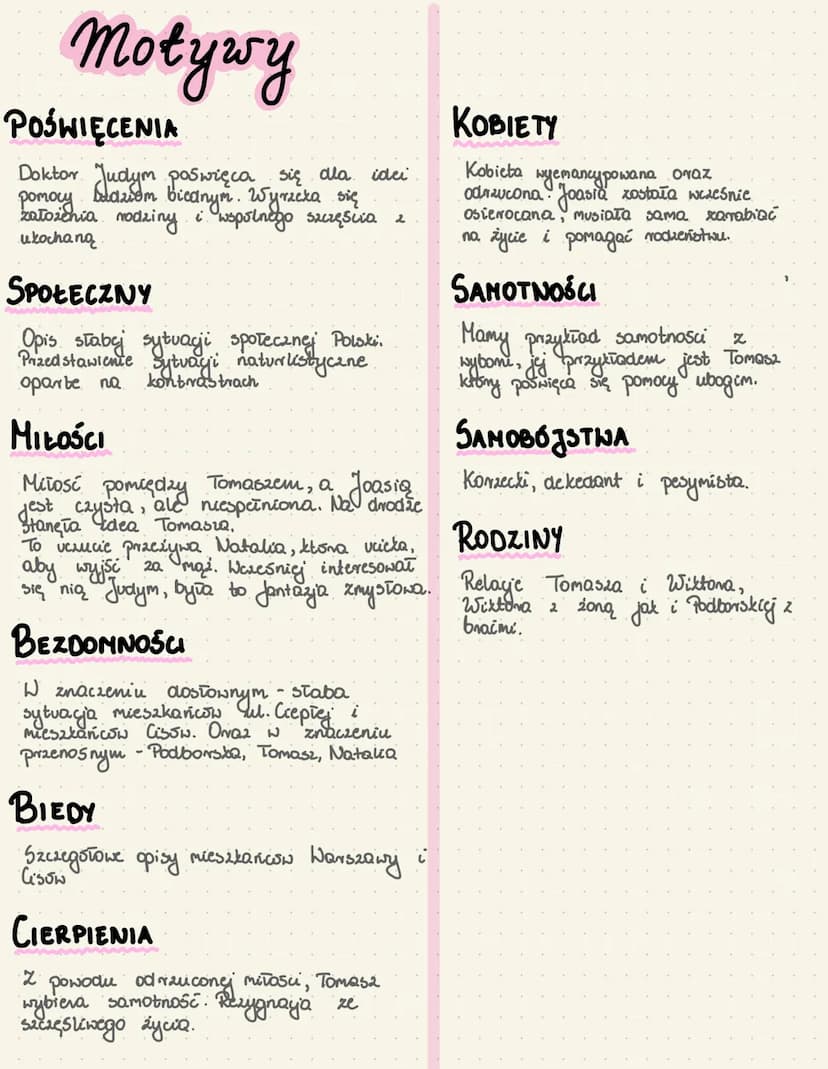 Motywy
POŚWIĘCENIA
Doktor Judym poświęca się dla idei
pomocy ludziom biednym. Wyrzeka się
założenia rodziny i wspólnego szczęścia z
ukochaną
SPOŁECZNY
Opis słabej sytuacji społecznej Polski.
Przedstawienie sytuacji naturlistyczne
oparte na kontrastrach
MIŁOŚCI
Miłość pomiędzy Tomaszem, a Joasią
jest czysta, ale niespełniona. Na drodze
stanęła idea Tomasza.
To uczucie przeżywa Natalia, która ucieka,
aby wyjść za mąż. Wcześniej interesował
się nią Judym, była to fantazja zmysłowa.
BEZDOMNOŚCI
W znaczeniu dosłownym - słaba
sytuacja mieszkańców ul. Ciepłej i
mieszkańców Cisów. Oraz w znaczeniu
przenośnym - Podborska, Tomasz, Natalia
BIEDY
Szczegółowe opisy mieszkańców Warszawy i
Cisów
CIERPIENIA
Z powodu odrzuconej miłości, Tomasz
wybiera samotność. Rezygnaja ze
szczęśliwego życia.
KOBIETY
Kobieta wyemancypowana oraz
odrzucona. Joasia została wcześnie
osierocana, musiała sama zarabiać
na życie i pomagać rodzeństwu.
SAMOTNOŚCI
Mamy przykład samotności z
wyboru, jej przykładem jest Tomasz
który poświęca się pomocy ubogim.
SAMOBÓJSTWA
Korzecki, dekedant i pesymista.
RODZINY
Relacje Tomasza i Wiktora,
Wiktora z żoną jak i Podborskiej z
braćmi.